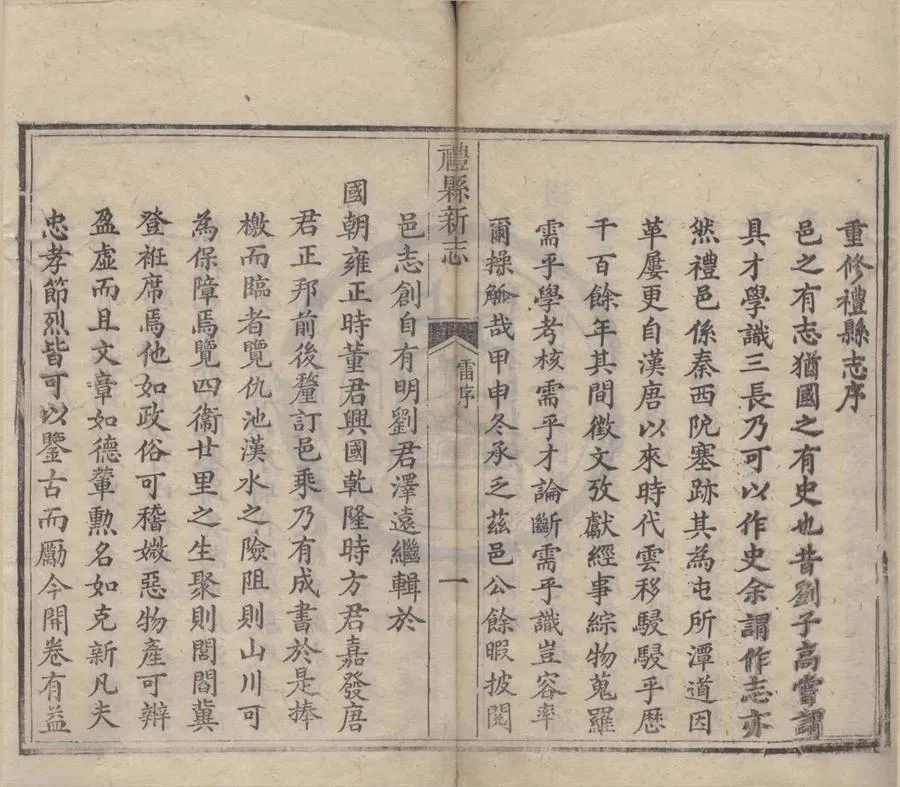 重修禮縣志序
邑之有志猶國之有史也昔劉子高嘗謂
具才學識三長乃可以作史余謂作志亦
然禮邑係秦西阨塞跡其為屯所潭道因
革屢更自漢唐以來時代雲移駸駸乎歷
千百餘年其間徵文攷獻經事綜物蒐羅
需乎學考核需乎才論斷需乎識豈容率
爾操觚哉甲申冬承乏茲邑公餘暇披閱
禮縣新志
雷序
一
邑志創自有明劉君澤遠繼輯於
國朝雍正時董君興國乾隆時方君嘉發唐
君正邦前後釐訂邑乘乃有成書於是捧
檄而臨者覽仇池漢水之險阻則山川可
為保障焉覽四衞廿里之生聚則閭閻冀
登袵席焉他如政俗可稽媺惡物產可辨
盈虛而且文章如德輦勲名如克新凡夫
忠孝節烈皆可以鑒古而勵今開卷有益